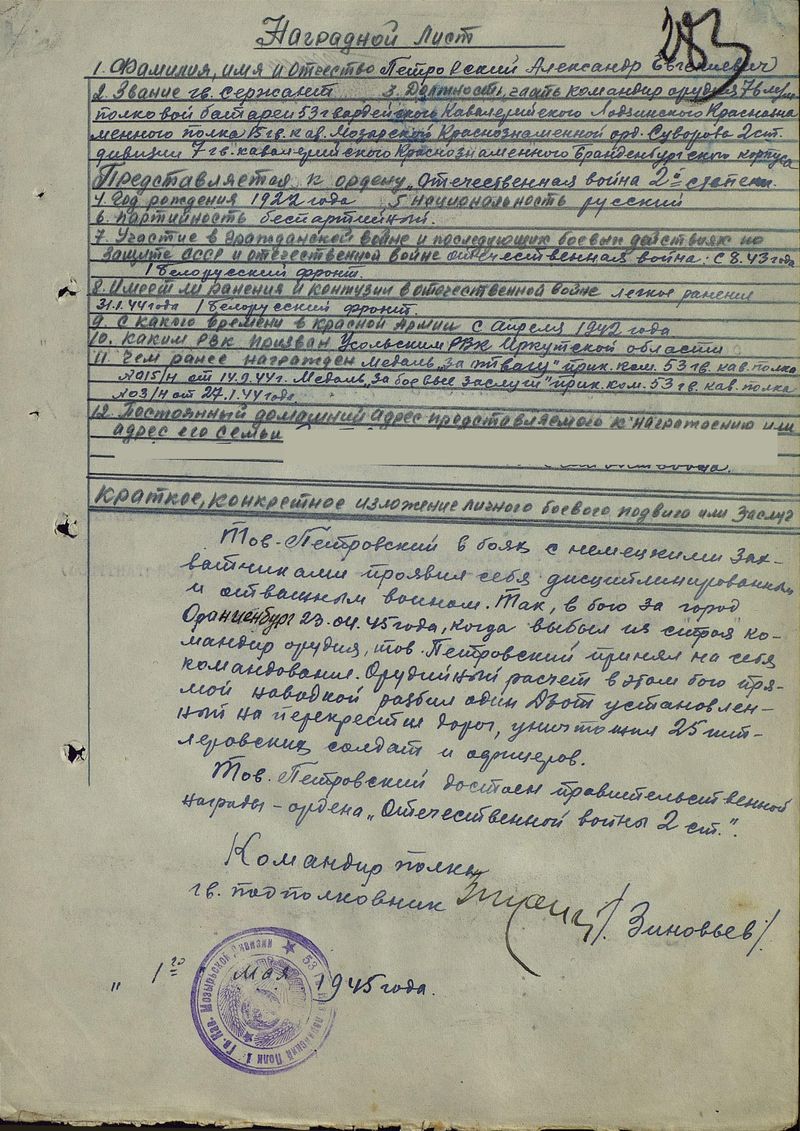 283
Наградной лист
1. Фамилия, имя и Отчество Петровский Александр Евгениевич
2. Звание гв. сержант 3. Должность, часть командир орудия 76 м/м
полковой батареи 53 гвардейского Кавалерийского Лодзинского Краснозна
менного полка 15 гв. кав. Мозырской Краснознаменной орд. Суворова 2 ст.
дивизии 7 гв. кавалерийского Краснознаменного Бранденбургского корпуса
Представляется к ордену „Отечественная война 2ой степени.
4. Год рождения 1922 года 5 национальность русский
6. партийность беспартийный.
7. Участие в гражданской войне и последующих боевых действиях по
защите СССР и отечественной войне отечественная война: с 8.43 года
1 Белорусский фронт.
8. Имеет ли ранения и контузии в отечественной войне легкое ранение
31.1.44 года 1 Белорусский фронт.
9. С какого времени в красной Армии с апреля 1942 года
10. каким РВК призван Усольским РВК Иркутской области
11. Чем ранее награжден медаль „за отвагу" прик. ком. 53 гв. кав. полка
№015/н от 14.9.44г. Медаль „за боевые заслуги" прик. ком. 53 гв. кав. полка
№03/н от 27.1.44 года.
12. Постоянный домашний адрес представляемого к награждению или
адрес его семьи
Краткое, конкретное изложение личного боевого подвига или заслуг
Тов. Петровский в боях с немецкими зах-
ватчиками проявил себя дисциплинированным
и отважным воином. Так, в бою за город
Ораниенбург 23.04.45 года, когда выбыл из строя ко-
мандир орудия, тов. Петровский принял на себя
командование. Орудийный расчет в этом бою пря-
мой наводкой разбил один Дзот установлен-
ный на перекрестке дорог, уничтожил 25 гит-
леровских солдат и офицеров.
Тов. Петровский достоен правительственной
награды - ордена „Отечественной войны 2 ст.".
Командир полка
гв. подполковник /Зиновьев/.
„ 1го мая 1945 года.
53 Гв. Кав. Мозырской Дивизии